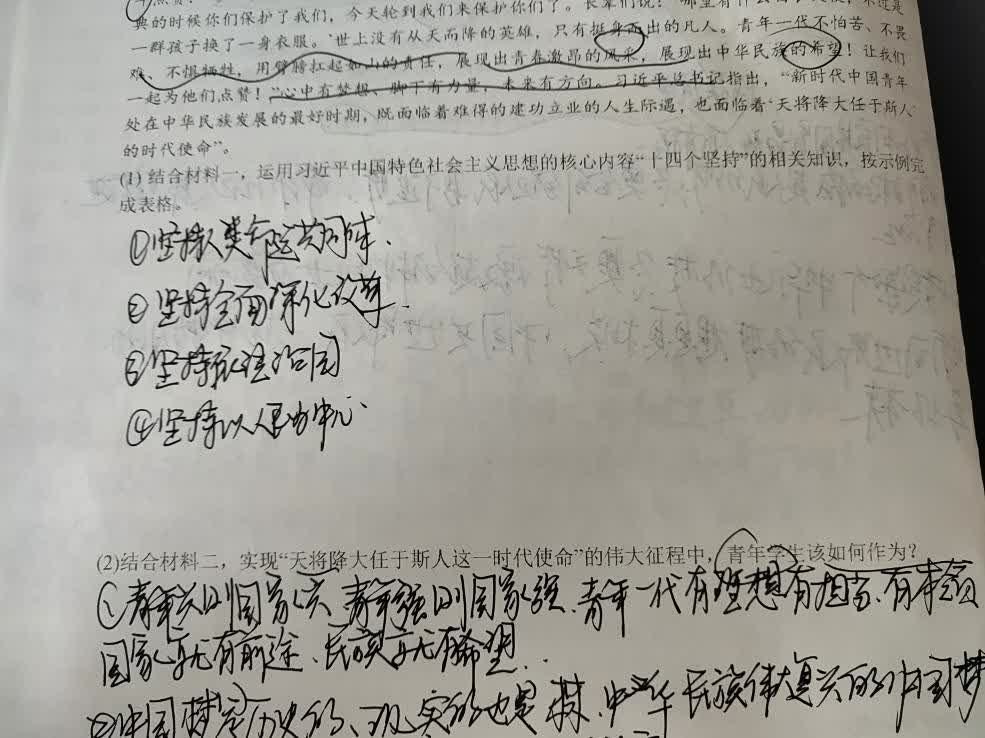 典的时候你们保护了我们，今天轮到我们来保护你们了。长辈们说：‘哪里有什么
一群孩子换了一身衣服。’世上没有从天而降的英雄，只有挺身而出的凡人。青年一代不怕苦、不畏
难、不惧牺牲，用臂膀扛起如山的责任，展现出青春激昂的风采，展现出中华民族的希望！让我们
一起为他们点赞！”心中有梦想、脚下有力量，未来有方向。习近平总书记指出，“新时代中国青年
处在中华民族发展的最好时期，既面临着难得的建功立业的人生际遇，也面临着‘天将降大任于斯人’
的时代使命”。
(1) 结合材料一，运用习近平中国特色社会主义思想的核心内容“十四个坚持”的相关知识，按示例完
成表格。
①坚持人类命运共同体.
②坚持全面深化改革.
③坚持依法治国
④坚持以人民为中心.
(2)结合材料二，实现“天将降大任于斯人这一时代使命”的伟大征程中，青年学生该如何作为？
①青年兴则国家兴,青年强则国家强.青年一代有理想有担当.有本领
国家就有前途.民族就有希望..
②中国梦是历史的、现实的也是 中华民族伟大复兴的中国梦